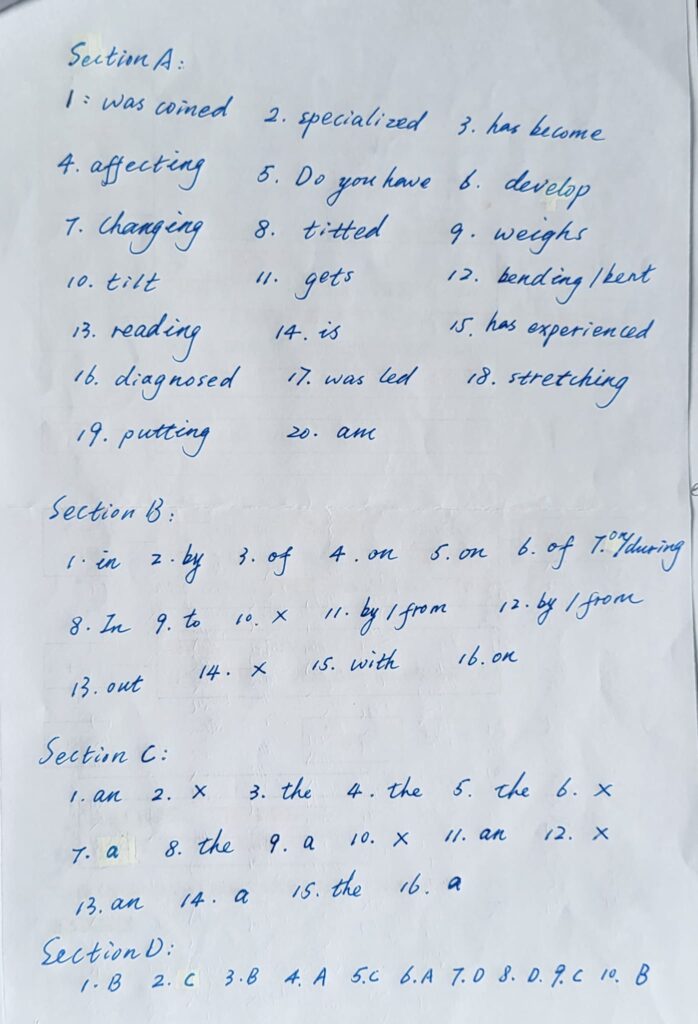 Section A:
1: was coined 2. specialized 3. has become
4. affecting 5. Do you have 6. develop
7. Changing 8. titted 9. weighs
10. tilt 11. gets 12. bending / bent
13. reading 14. is 15. has experienced
16. diagnosed 17. was led 18. stretching
19. putting 20. am
Section B:
1. in 2. by 3. of 4. on 5. on 6. of 7. on/during
8. In 9. to 10. × 11. by / from 12. by / from
13. out 14. × 15. with 16. on
Section C:
1. an 2. × 3. the 4. the 5. the 6. ×
7. a 8. the 9. a 10. × 11. an 12. ×
13. an 14. a 15. the 16. a
Section D:
1. B 2. C 3. B 4. A 5. C 6. A 7. D 8. D. 9. C 10. B